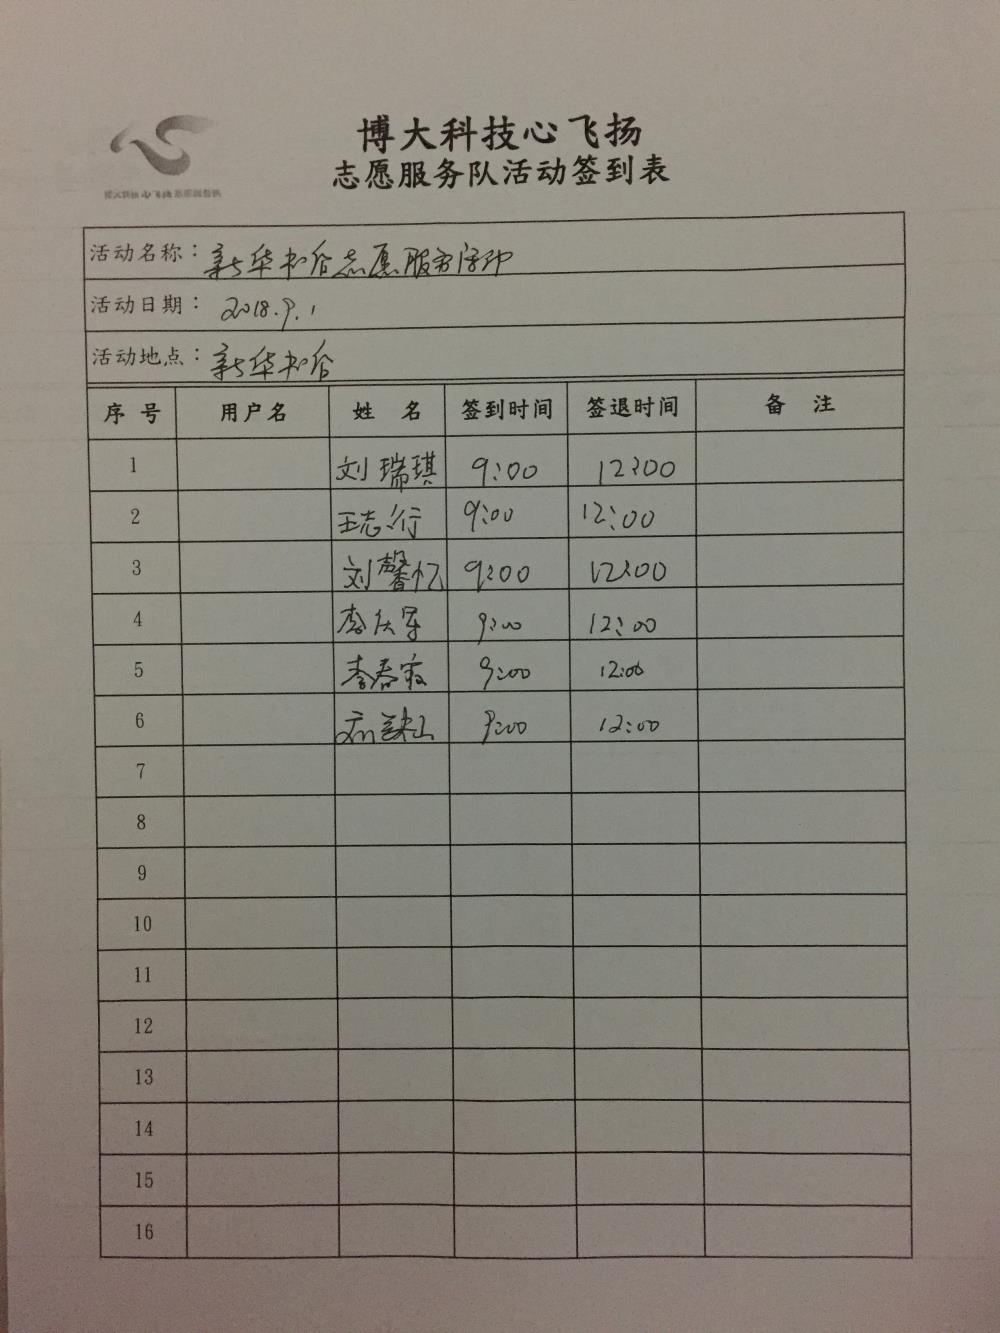 博大科技心飞扬
志愿服务队活动签到表
博大科技心飞扬志愿服务队
活动名称：新华书店志愿服务活动
活动日期：2018.9.1
活动地点：新华书店
序号 用户名 姓名 签到时间 签退时间 备注
1 刘瑞琪 9:00 12:00
2 王志行 9:00 12:00
3 刘馨忆 9:00 12:00
4 李庆军 9:00 12:00
5 李春 9:00 12:00
6 刘 9:00 12:00
7
8
9
10
11
12
13
14
15
16